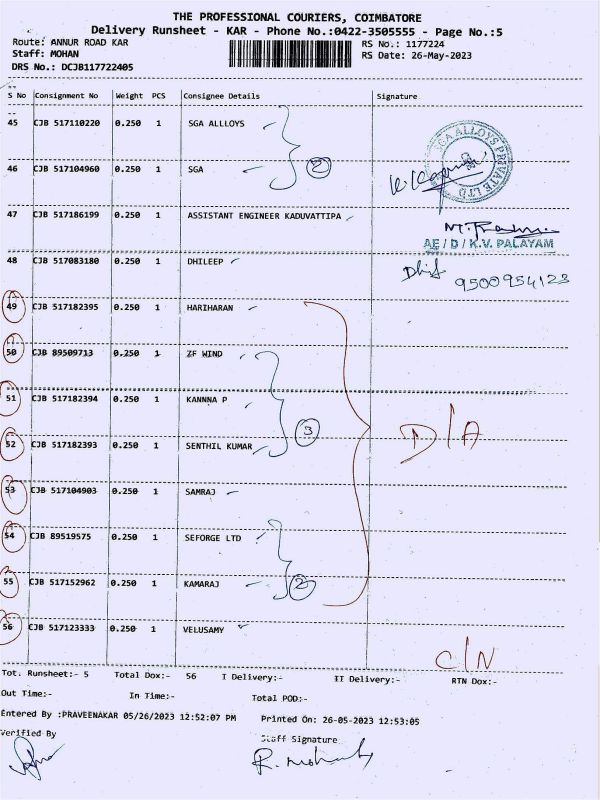 THE PROFESSIONAL COURIERS, COIMBATORE
Delivery Runsheet - KAR - Phone No.:0422-3505555 - Page No.:5
Route: ANNUR ROAD KAR RS No.: 1177224
Staff: MOHAN RS Date: 26-May-2023
DRS No.: DCJB117722405
S No Consignment No Weight PCS Consignee Details Signature
45 CJB 517110220 0.250 1 SGA ALLLOYS
SGA ALLOYS PRIVATE LTD
46 CJB 517104960 0.250 1 SGA 2
47 CJB 517186199 0.250 1 ASSISTANT ENGINEER KADUVATTIPA
AE / D / K.V. PALAYAM
48 CJB 517083180 0.250 1 DHILEEP
9500954123
49 CJB 517182395 0.250 1 HARIHARAN
50 CJB 89509713 0.250 1 ZF WIND
51 CJB 517182394 0.250 1 KANNNA P
3 D/A
52 CJB 517182393 0.250 1 SENTHIL KUMAR
53 CJB 517104903 0.250 1 SAMRAJ
54 CJB 89519575 0.250 1 SEFORGE LTD
55 CJB 517152962 0.250 1 KAMARAJ 2
56 CJB 517123333 0.250 1 VELUSAMY
C/N
Tot. Runsheet:- 5 Total Dox:- 56 I Delivery:- II Delivery:- RTN Dox:-
Out Time:- In Time:- Total POD:-
Entered By :PRAVEENAKAR 05/26/2023 12:52:07 PM Printed On: 26-05-2023 12:53:05
Verified By Staff Signature